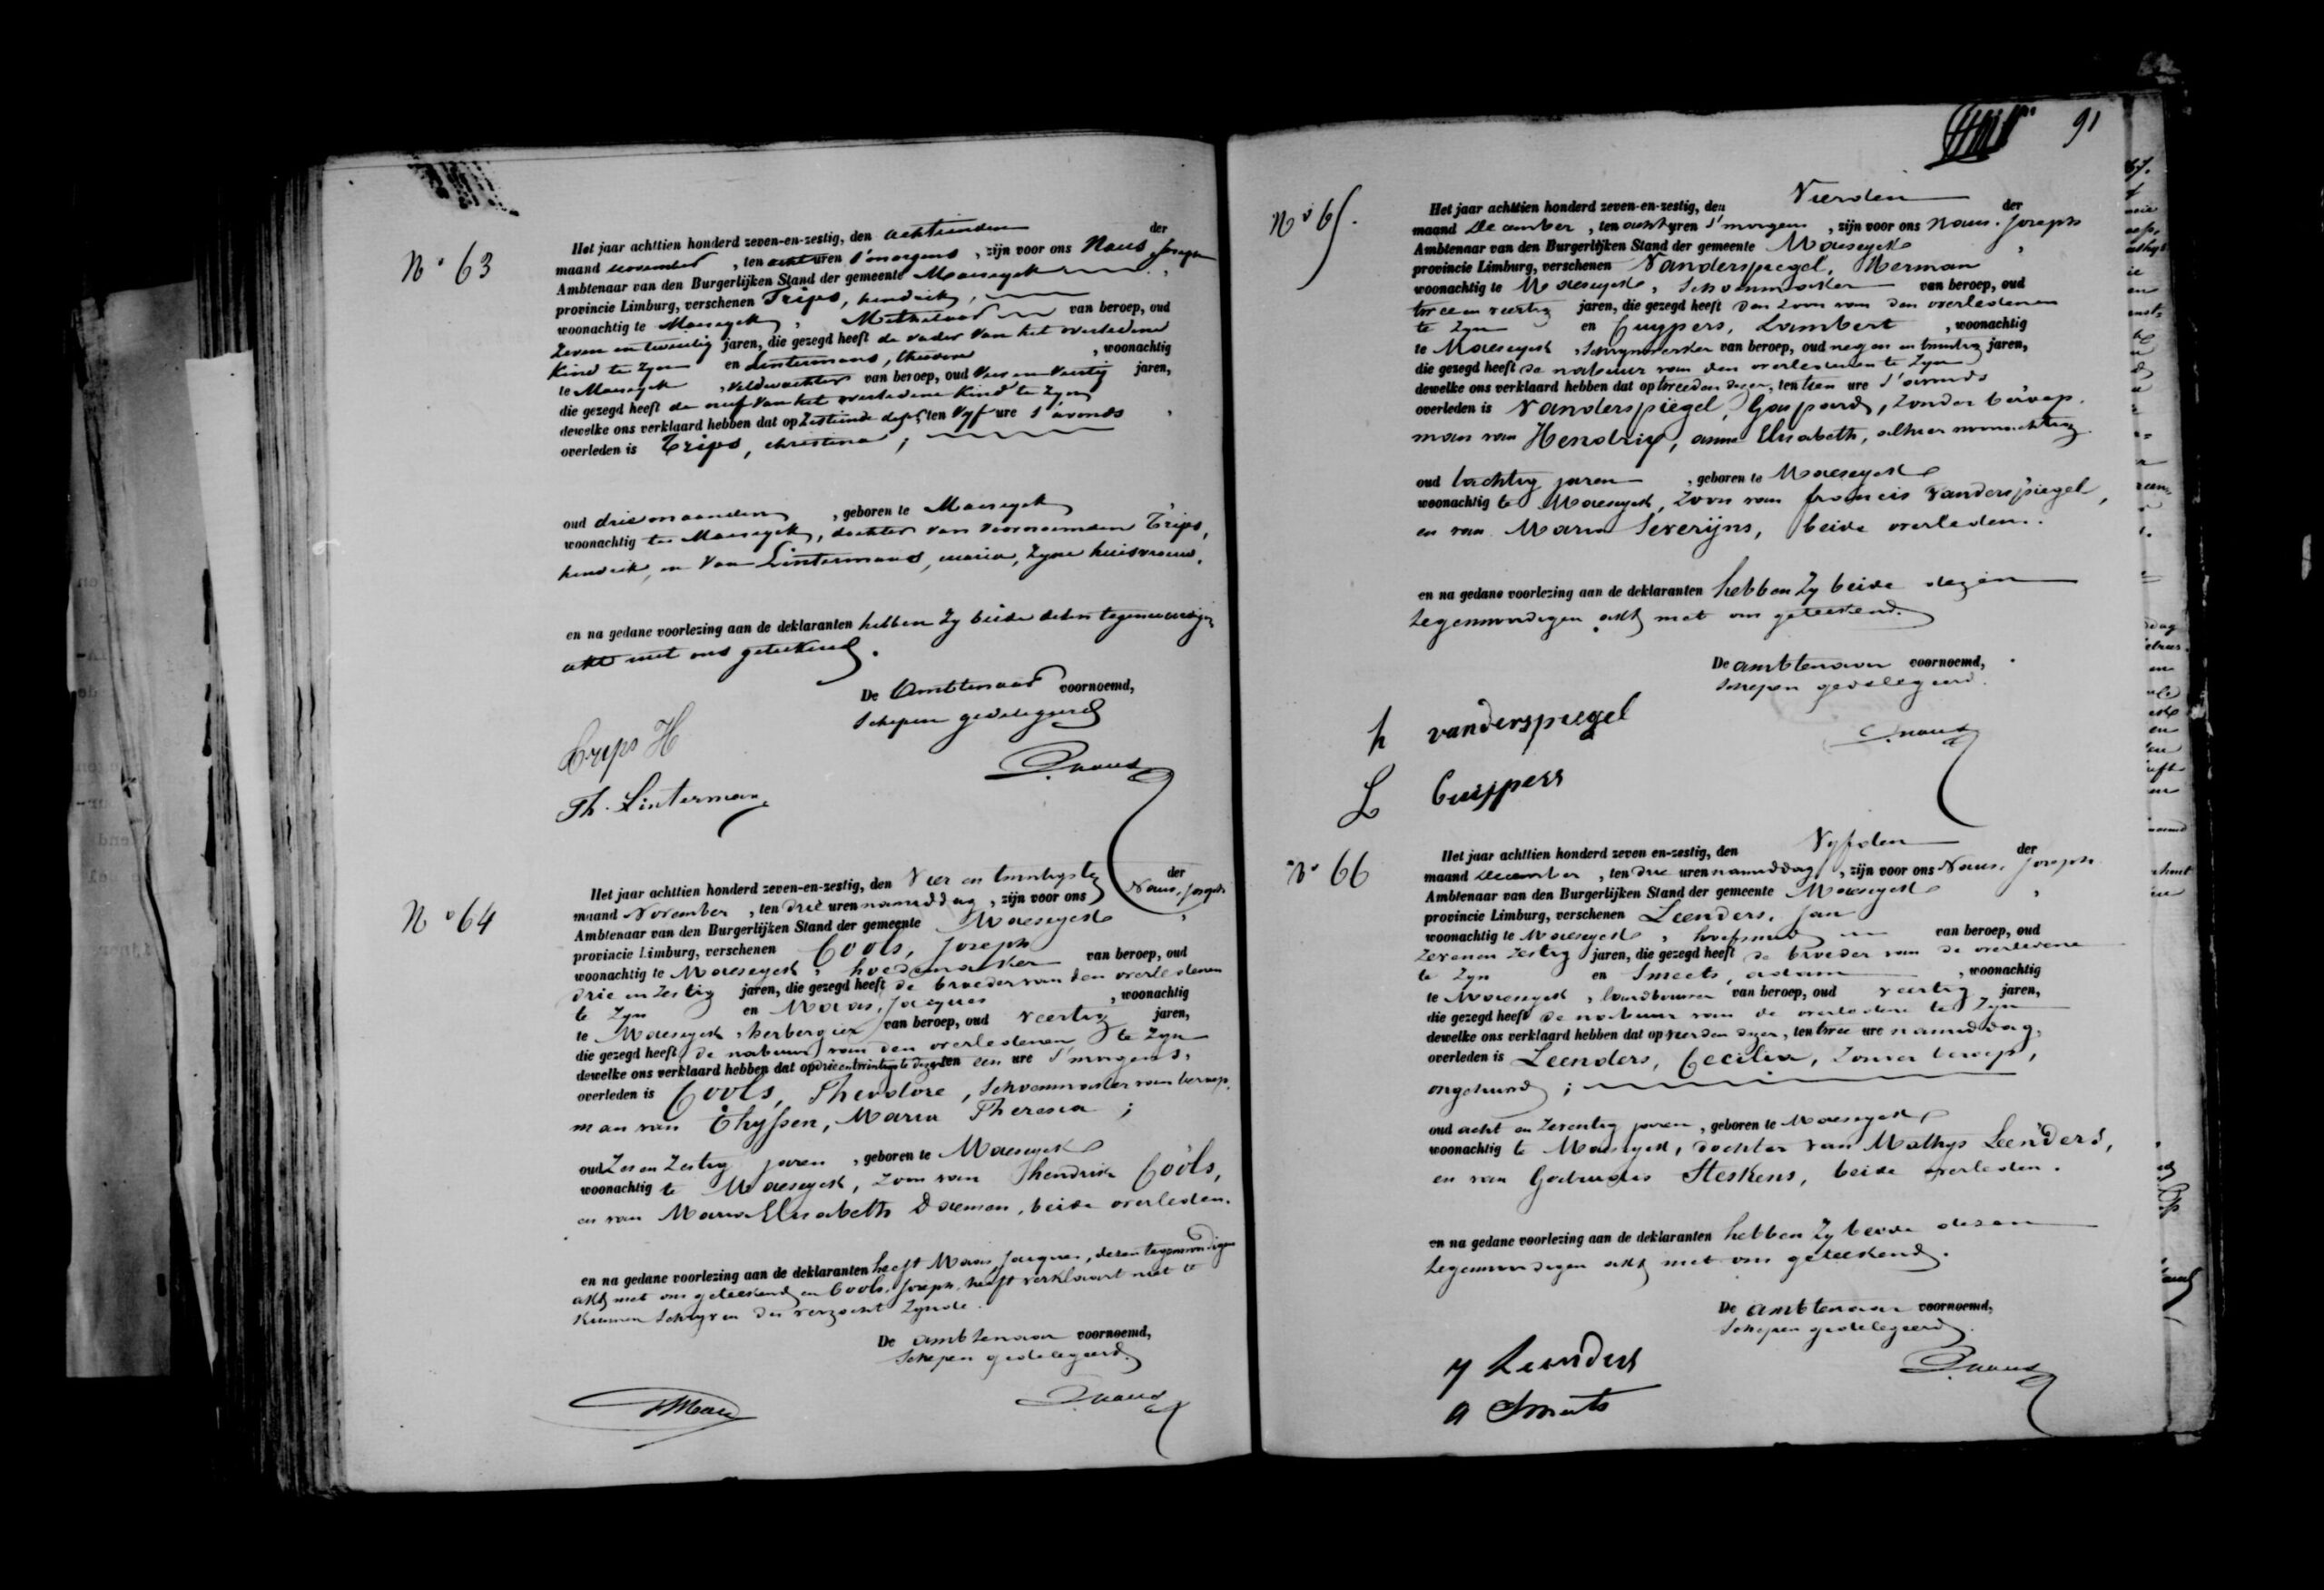 N° 63
Het jaar achttien honderd zeven-en-zestig, den achttienden der
maand november, ten acht uren s'morgens, zijn voor ons Naus Joseph
Ambtenaar van den Burgerlijken Stand der gemeente Maeseyck,
provincie Limburg, verschenen Trips, hendrik,
woonachtig te Maeseyck, Metselaar van beroep, oud
zeven en twintig jaren, die gezegd heeft de vader van het overledene
Kind te zyn en Lintermans, theodore, woonachtig
te Maeseyck, veldwachter van beroep, oud jaren,
die gezegd heeft de neef van het overledene Kind te zyn
dewelke ons verklaard hebben dat op Zestiende deser, ten vyf ure s'avonds,
overleden is Trips, christina;
oud drie maanden, geboren te Maeseyck
woonachtig te Maeseyck, dochter van voornoemden Trips,
hendrik, en van Lintermans, maria, zyne huisvrouw.
en na gedane voorlezing aan de deklaranten hebben zy beide desen tegenwoordigen
akte met ons geteekend.
De Ambtenaar voornoemd,
Schepen gedelegeerd
Trips H
Th. Lintermans
Naus
N° 64
Het jaar achttien honderd zeven-en-zestig, den Vier en twintigste der
maand November, ten drie uren namiddag, zijn voor ons Naus, Joseph
Ambtenaar van den Burgerlijken Stand der gemeente Maeseyck,
provincie Limburg, verschenen Cools, Joseph
woonachtig te Maeseyck, hoedemaker van beroep, oud
drie en zestig jaren, die gezegd heeft de broeder van den overledenen
te zyn en Maas, Jacques, woonachtig
te Maeseyck, herbergier van beroep, oud veertig jaren,
die gezegd heeft de nabuur van den overledenen te zyn
dewelke ons verklaard hebben dat op drie en twintigste dezer, ten een ure s'morgens,
overleden is Cools, Theodore, Schoenmaker van beroep,
man van Thyssen, Maria Theresia;
oud Zes en Zestig jaren, geboren te Maeseyck
woonachtig te Maeseyck, zoon van Hendrik Cools,
en van Maria Elisabeth Daemen, beide overleden.
en na gedane voorlezing aan de deklaranten heeft Maas, Jacques, dezen tegenwoordigen
akte met ons geteekend en Cools, Joseph, heeft verklaart niet te
kunnen schryven des verzocht zynde.
De ambtenaar voornoemd,
Schepen gedelegeerd.
Maas
Naus
91
N° 65.
Het jaar achttien honderd zeven-en-zestig, den Vierden der
maand December, ten acht uren s'morgens, zijn voor ons Naus, Joseph
Ambtenaar van den Burgerlijken Stand der gemeente Maeseyck,
provincie Limburg, verschenen Vanderspiegel, Herman
woonachtig te Maeseyck, Schoenmaker van beroep, oud
twee en veertig jaren, die gezegd heeft den zoon van den overledenen
te zyn en Cuypers, Lambert, woonachtig
te Maeseyck, Schrynwerker van beroep, oud negen en twintig jaren,
die gezegd heeft de nabuur van den overledenen te zyn
dewelke ons verklaard hebben dat op tweeden dezer, ten tien ure s'avonds,
overleden is Vanderspiegel, Gaspard, zonder beroep.
man van Hendrix, anna Elisabeth, alhier woonachtig.
oud tachtig jaren, geboren te Maeseyck
woonachtig te Maeseyck, zoon van francis vanderspiegel,
en van Maria Severyns, beide overleden.
en na gedane voorlezing aan de deklaranten hebben zy beide dezen
tegenwoordigen akte met ons geteekend.
De ambtenaar voornoemd,
Schepen gedelegeerd.
h vanderspiegel
L Cuijpers
Naus
N° 66
Het jaar achttien honderd zeven en-zestig, den Vyfden der
maand December, ten drie uren namiddag, zijn voor ons Naus, Joseph
Ambtenaar van den Burgerlijken Stand der gemeente Maeseyck,
provincie Limburg, verschenen Leenders, Jan
woonachtig te Maeseyck, hoefsmid van beroep, oud
zeven en zestig jaren, die gezegd heeft de broeder van de overledene
te zyn en Smeets, adam, woonachtig
te Maeseyck, landbouwer van beroep, oud veertig jaren,
die gezegd heeft de nabuur van de overledene te zyn
dewelke ons verklaard hebben dat op vierden dezer, ten twee ure namiddag,
overleden is Leenders, Cecilia, zonder beroep,
ongehuwd;
oud acht en zeventig jaren, geboren te Maeseyck
woonachtig te Maeseyck, dochter van Mathys Leenders,
en van Gertrudis Steskens, beide overleden.
en na gedane voorlezing aan de deklaranten hebben zy beide dezen
tegenwoordigen akte met ons geteekend.
De ambtenaar voornoemd,
Schepen gedelegeerd.
J Leenders
A Smeets
Naus